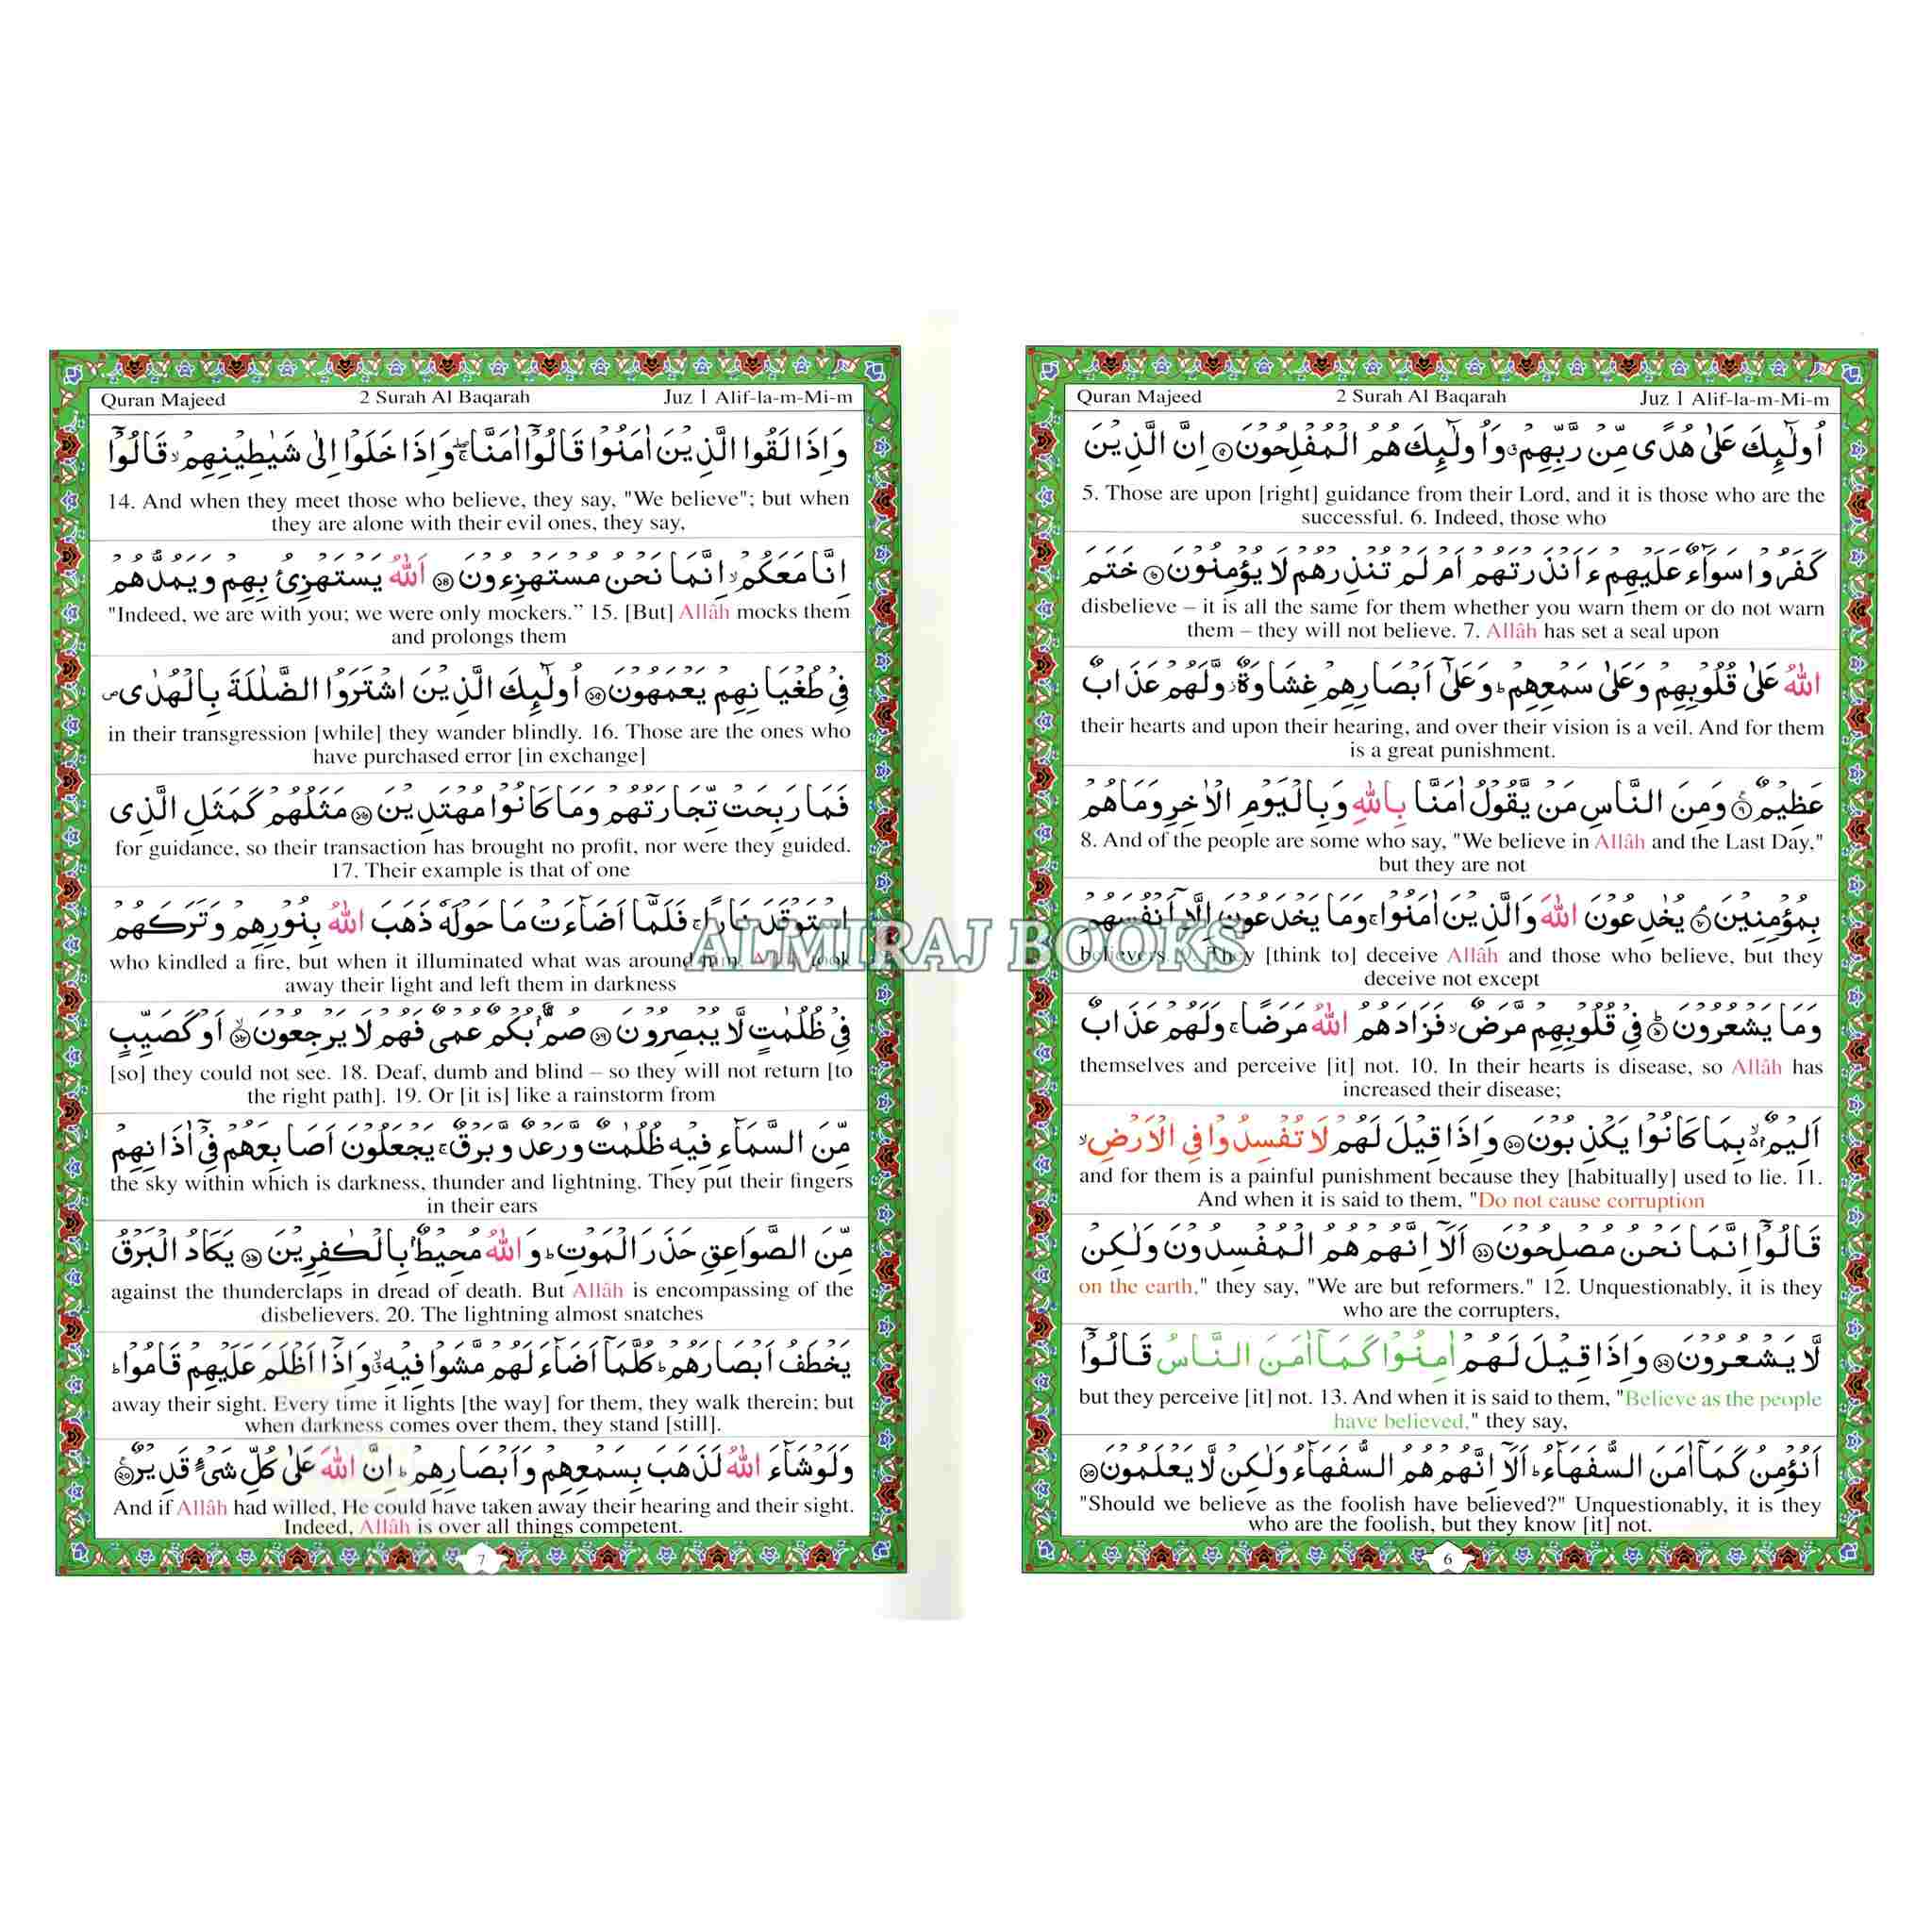 Quran Majeed 2 Surah Al Baqarah Juz 1 Alif-la-m-Mi-m
اُولٰٓئِكَ عَلٰى هُدًى مِّنْ رَّبِّهِمْ ۗ وَاُولٰٓئِكَ هُمُ الْمُفْلِحُوْنَ ۵ اِنَّ الَّذِيْنَ
5. Those are upon [right] guidance from their Lord, and it is those who are the
successful. 6. Indeed, those who
كَفَرُوْا سَوَآءٌ عَلَيْهِمْ ءَاَنْذَرْتَهُمْ اَمْ لَمْ تُنْذِرْهُمْ لَا يُؤْمِنُوْنَ ۶ خَتَمَ
disbelieve – it is all the same for them whether you warn them or do not warn
them – they will not believe. 7. Allâh has set a seal upon
اللّٰهُ عَلٰى قُلُوْبِهِمْ وَعَلٰى سَمْعِهِمْ ؕ وَعَلٰٓى اَبْصَارِهِمْ غِشَاوَةٌ ؗ وَّلَهُمْ عَذَابٌ
their hearts and upon their hearing, and over their vision is a veil. And for them
is a great punishment.
عَظِيْمٌ ۷ وَمِنَ النَّاسِ مَنْ يَّقُوْلُ اٰمَنَّا بِاللّٰهِ وَبِالْيَوْمِ الْاٰخِرِ وَمَا هُمْ
8. And of the people are some who say, "We believe in Allâh and the Last Day,"
but they are not
بِمُؤْمِنِيْنَ ۸ يُخٰدِعُوْنَ اللّٰهَ وَالَّذِيْنَ اٰمَنُوْا ۚ وَمَا يَخْدَعُوْنَ اِلَّآ اَنْفُسَهُمْ
believers. 9. They [think to] deceive Allâh and those who believe, but they
deceive not except
وَمَا يَشْعُرُوْنَ ۹ فِيْ قُلُوْبِهِمْ مَّرَضٌ ۙ فَزَادَهُمُ اللّٰهُ مَرَضًا ۚ وَلَهُمْ عَذَابٌ
themselves and perceive [it] not. 10. In their hearts is disease, so Allâh has
increased their disease;
اَلِيْمٌ ۙ۬ بِمَا كَانُوْا يَكْذِبُوْنَ ۱۰ وَاِذَا قِيْلَ لَهُمْ لَا تُفْسِدُوْا فِي الْاَرْضِ ۙ
and for them is a painful punishment because they [habitually] used to lie. 11.
And when it is said to them, "Do not cause corruption
قَالُوْٓا اِنَّمَا نَحْنُ مُصْلِحُوْنَ ۱۱ اَلَآ اِنَّهُمْ هُمُ الْمُفْسِدُوْنَ وَلٰكِنْ
on the earth," they say, "We are but reformers." 12. Unquestionably, it is they
who are the corrupters,
لَّا يَشْعُرُوْنَ ۱۲ وَاِذَا قِيْلَ لَهُمْ اٰمِنُوْا كَمَآ اٰمَنَ النَّاسُ قَالُوْٓا
but they perceive [it] not. 13. And when it is said to them, "Believe as the people
have believed," they say,
اَنُؤْمِنُ كَمَآ اٰمَنَ السُّفَهَآءُ ؕ اَلَآ اِنَّهُمْ هُمُ السُّفَهَآءُ وَلٰكِنْ لَّا يَعْلَمُوْنَ ۱۳
"Should we believe as the foolish have believed?" Unquestionably, it is they
who are the foolish, but they know [it] not.
6
Quran Majeed 2 Surah Al Baqarah Juz 1 Alif-la-m-Mi-m
وَاِذَا لَقُوا الَّذِيْنَ اٰمَنُوْا قَالُوْٓا اٰمَنَّا ۖۚ وَاِذَا خَلَوْا اِلٰى شَيٰطِيْنِهِمْ ۙ قَالُوْٓا
14. And when they meet those who believe, they say, "We believe"; but when
they are alone with their evil ones, they say,
اِنَّا مَعَكُمْ ۙ اِنَّمَا نَحْنُ مُسْتَهْزِءُوْنَ ۱۴ اَللّٰهُ يَسْتَهْزِئُ بِهِمْ وَيَمُدُّهُمْ
"Indeed, we are with you; we were only mockers.” 15. [But] Allâh mocks them
and prolongs them
فِيْ طُغْيَانِهِمْ يَعْمَهُوْنَ ۱۵ اُولٰٓئِكَ الَّذِيْنَ اشْتَرَوُا الضَّلٰلَةَ بِالْهُدٰى ۪
in their transgression [while] they wander blindly. 16. Those are the ones who
have purchased error [in exchange]
فَمَا رَبِحَتْ تِّجَارَتُهُمْ وَمَا كَانُوْا مُهْتَدِيْنَ ۱۶ مَثَلُهُمْ كَمَثَلِ الَّذِى
for guidance, so their transaction has brought no profit, nor were they guided.
17. Their example is that of one
اسْتَوْقَدَ نَارًا ۚ فَلَمَّآ اَضَآءَتْ مَا حَوْلَهٗ ذَهَبَ اللّٰهُ بِنُوْرِهِمْ وَتَرَكَهُمْ
who kindled a fire, but when it illuminated what was around him, Allâh took
away their light and left them in darkness
فِيْ ظُلُمٰتٍ لَّا يُبْصِرُوْنَ ۱۷ صُمٌّۢ بُكْمٌ عُمْىٌ فَهُمْ لَا يَرْجِعُوْنَ ۱۸ اَوْ كَصَيِّبٍ
[so] they could not see. 18. Deaf, dumb and blind – so they will not return [to
the right path]. 19. Or [it is] like a rainstorm from
مِّنَ السَّمَآءِ فِيْهِ ظُلُمٰتٌ وَّرَعْدٌ وَّبَرْقٌ ۚ يَجْعَلُوْنَ اَصَابِعَهُمْ فِيْٓ اٰذَانِهِمْ
the sky within which is darkness, thunder and lightning. They put their fingers
in their ears
مِّنَ الصَّوَاعِقِ حَذَرَ الْمَوْتِ ؕ وَاللّٰهُ مُحِيْطٌۢ بِالْكٰفِرِيْنَ ۱۹ يَكَادُ الْبَرْقُ
against the thunderclaps in dread of death. But Allâh is encompassing of the
disbelievers. 20. The lightning almost snatches
يَخْطَفُ اَبْصَارَهُمْ ؕ كُلَّمَآ اَضَآءَ لَهُمْ مَّشَوْا فِيْهِ ۙ وَاِذَآ اَظْلَمَ عَلَيْهِمْ قَامُوْا ؕ
away their sight. Every time it lights [the way] for them, they walk therein; but
when darkness comes over them, they stand [still].
وَلَوْ شَآءَ اللّٰهُ لَذَهَبَ بِسَمْعِهِمْ وَاَبْصَارِهِمْ ؕ اِنَّ اللّٰهَ عَلٰى كُلِّ شَىْءٍ قَدِيْرٌ ۲۰
And if Allâh had willed, He could have taken away their hearing and their sight.
Indeed, Allâh is over all things competent.
7
ALMIRAJ BOOKS